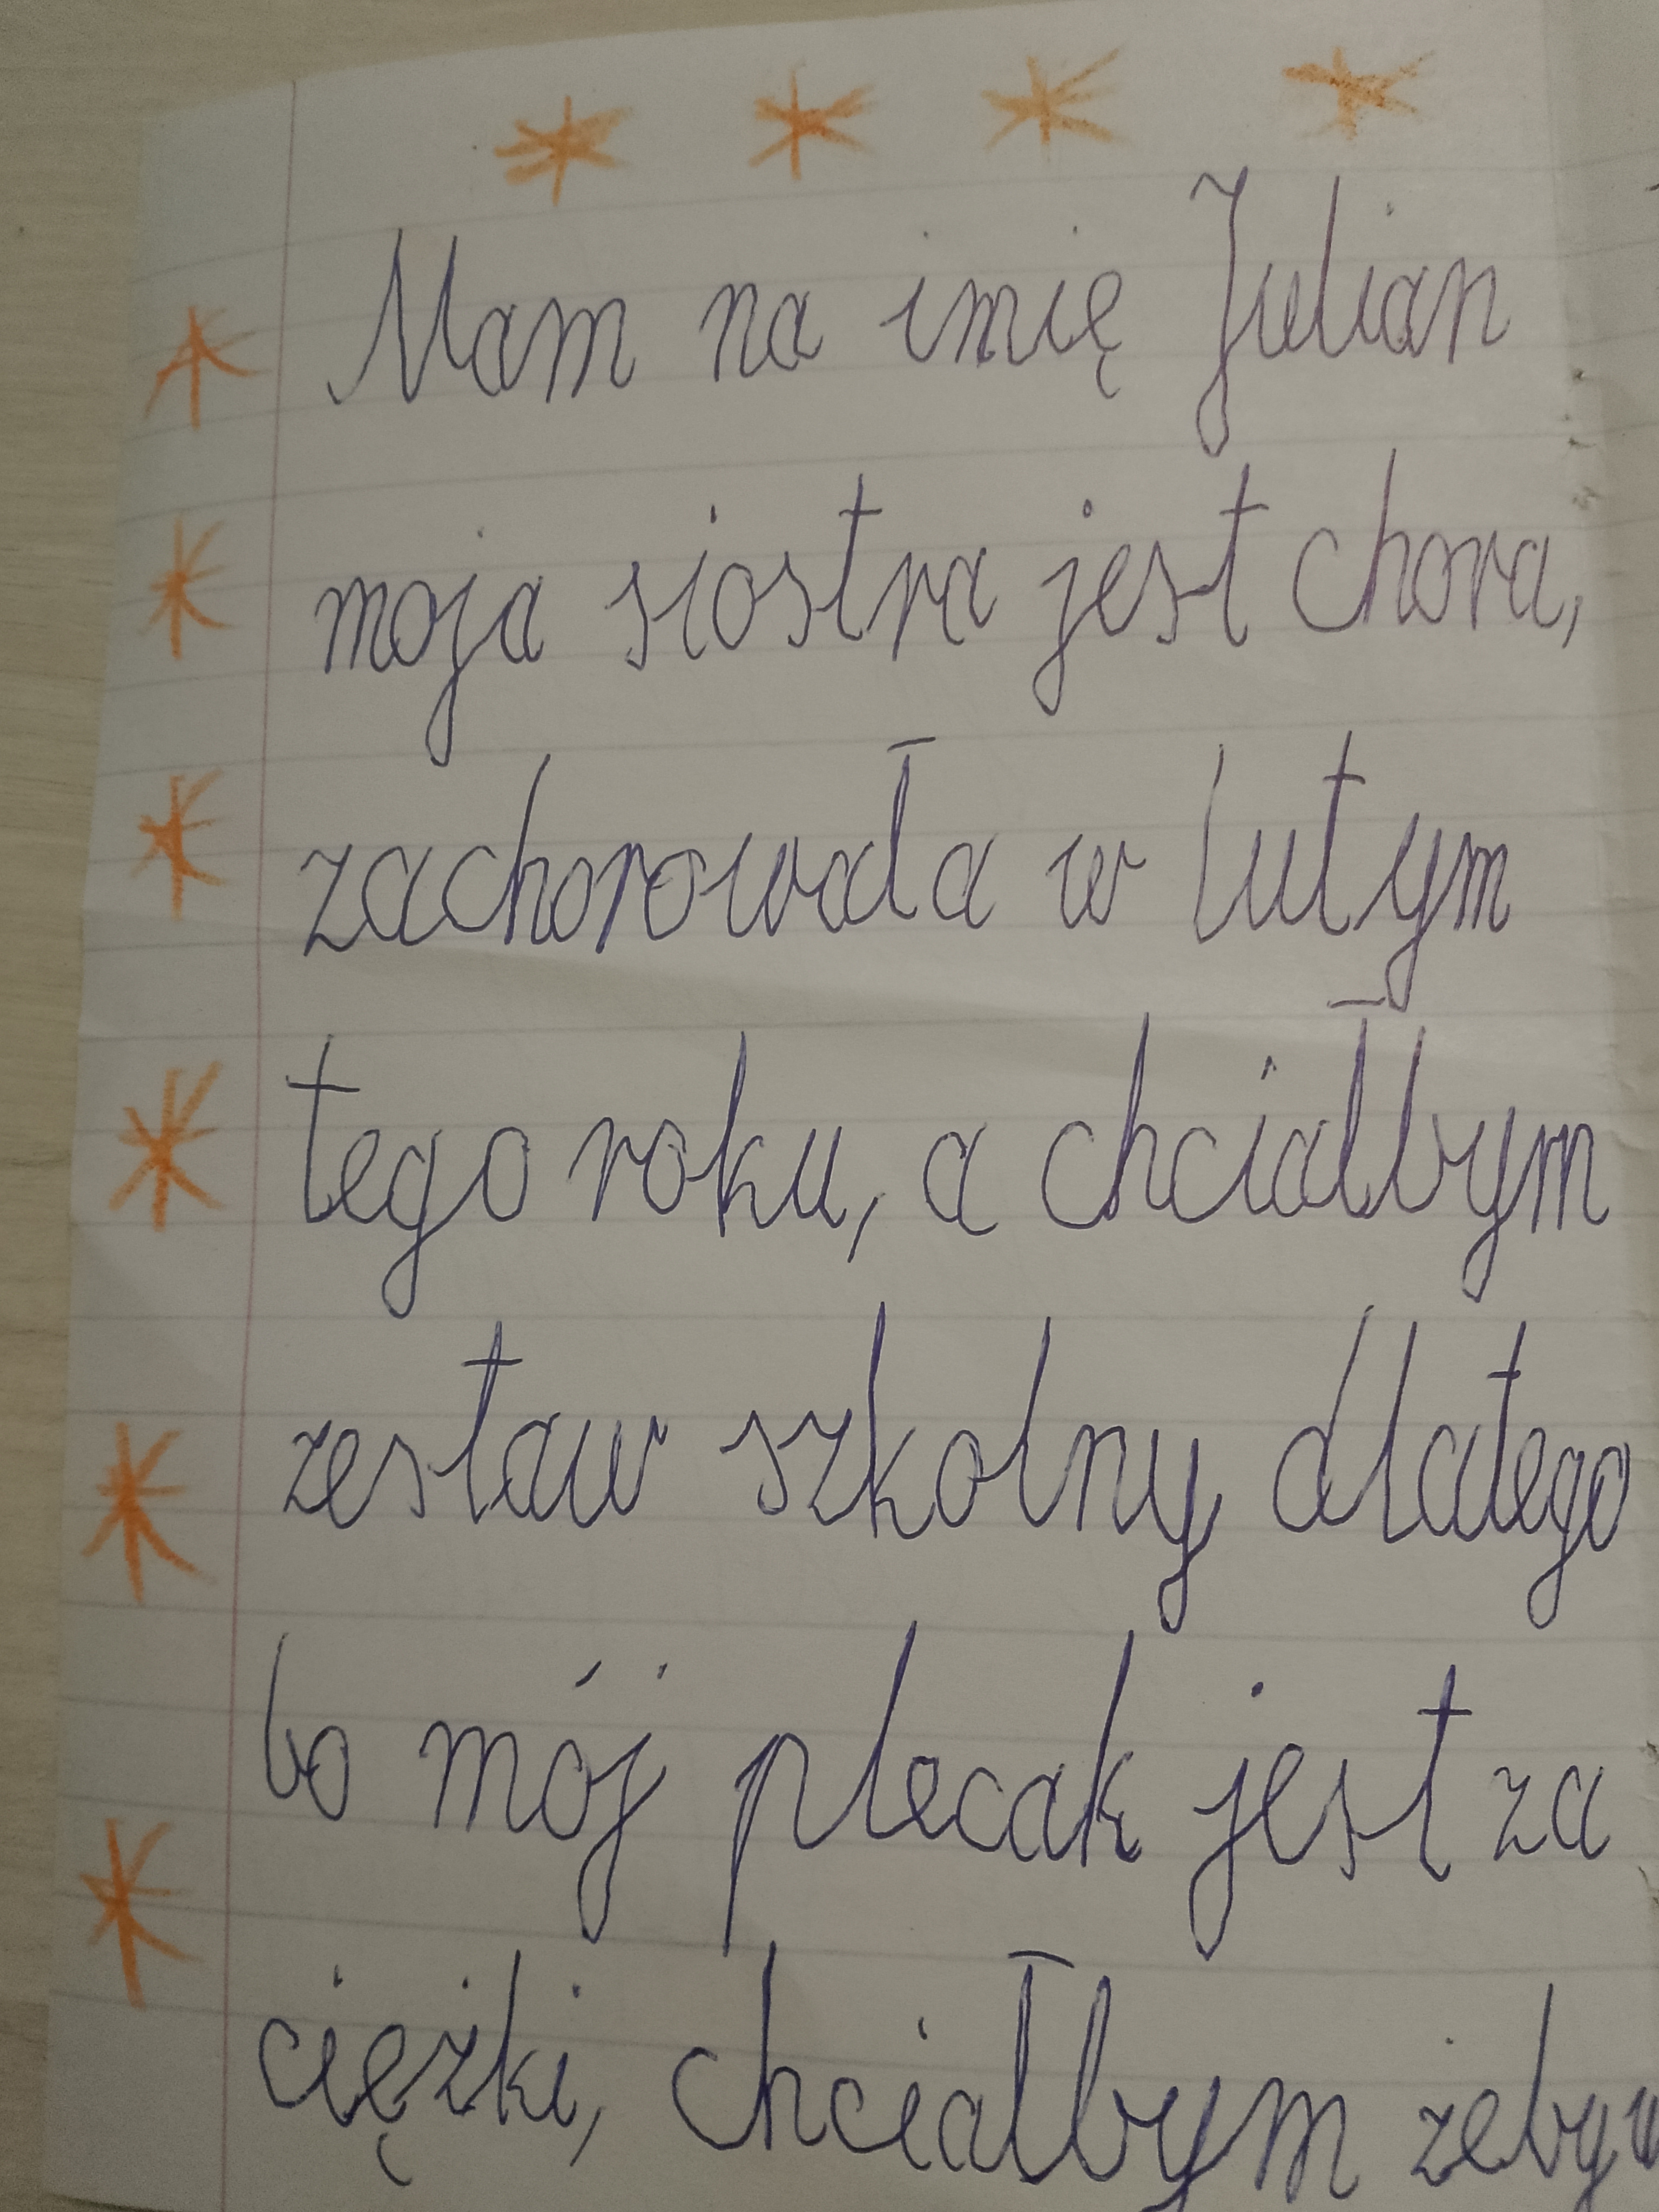 Mam na imię Julian
moja siostra jest chora,
zachorowała w lutym
tego roku, a chciałbym
zestaw szkolny dlatego
bo mój plecak jest za
ciężki, chciałbym żeby